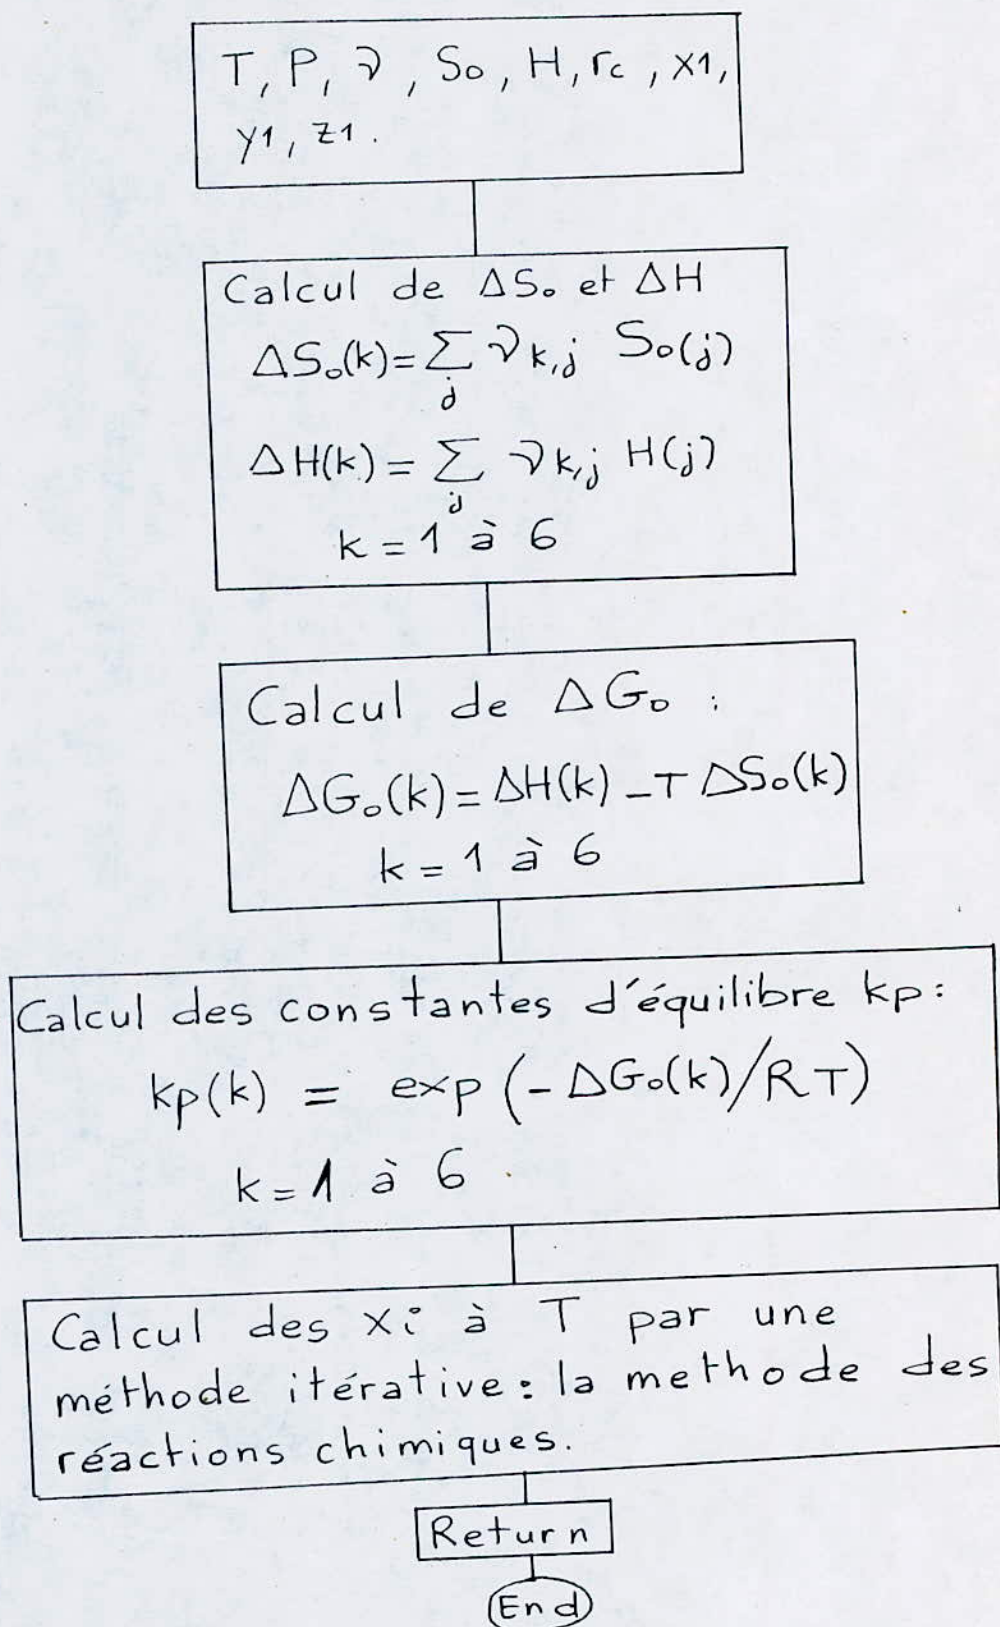 T, P, ν, So, H, rc, x1,
y1, z1.
Calcul de ΔSo et ΔH
ΔSo(k) = ∑j νk,j So(j)
ΔH(k) = ∑j νk,j H(j)
k = 1 à 6
Calcul de ΔGo :
ΔGo(k) = ΔH(k) - T ΔSo(k)
k = 1 à 6
Calcul des constantes d'équilibre kp:
kp(k) = exp (- ΔGo(k)/RT)
k = 1 à 6
Calcul des xi à T par une
méthode itérative: la methode des
réactions chimiques.
Return
End